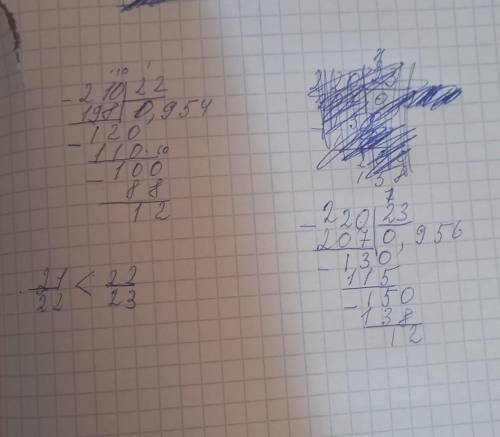 210 22
198 0,954
120
110
100
88
12
21/22 < 22/23
220 23
207 0,956
130
115
150
138
12